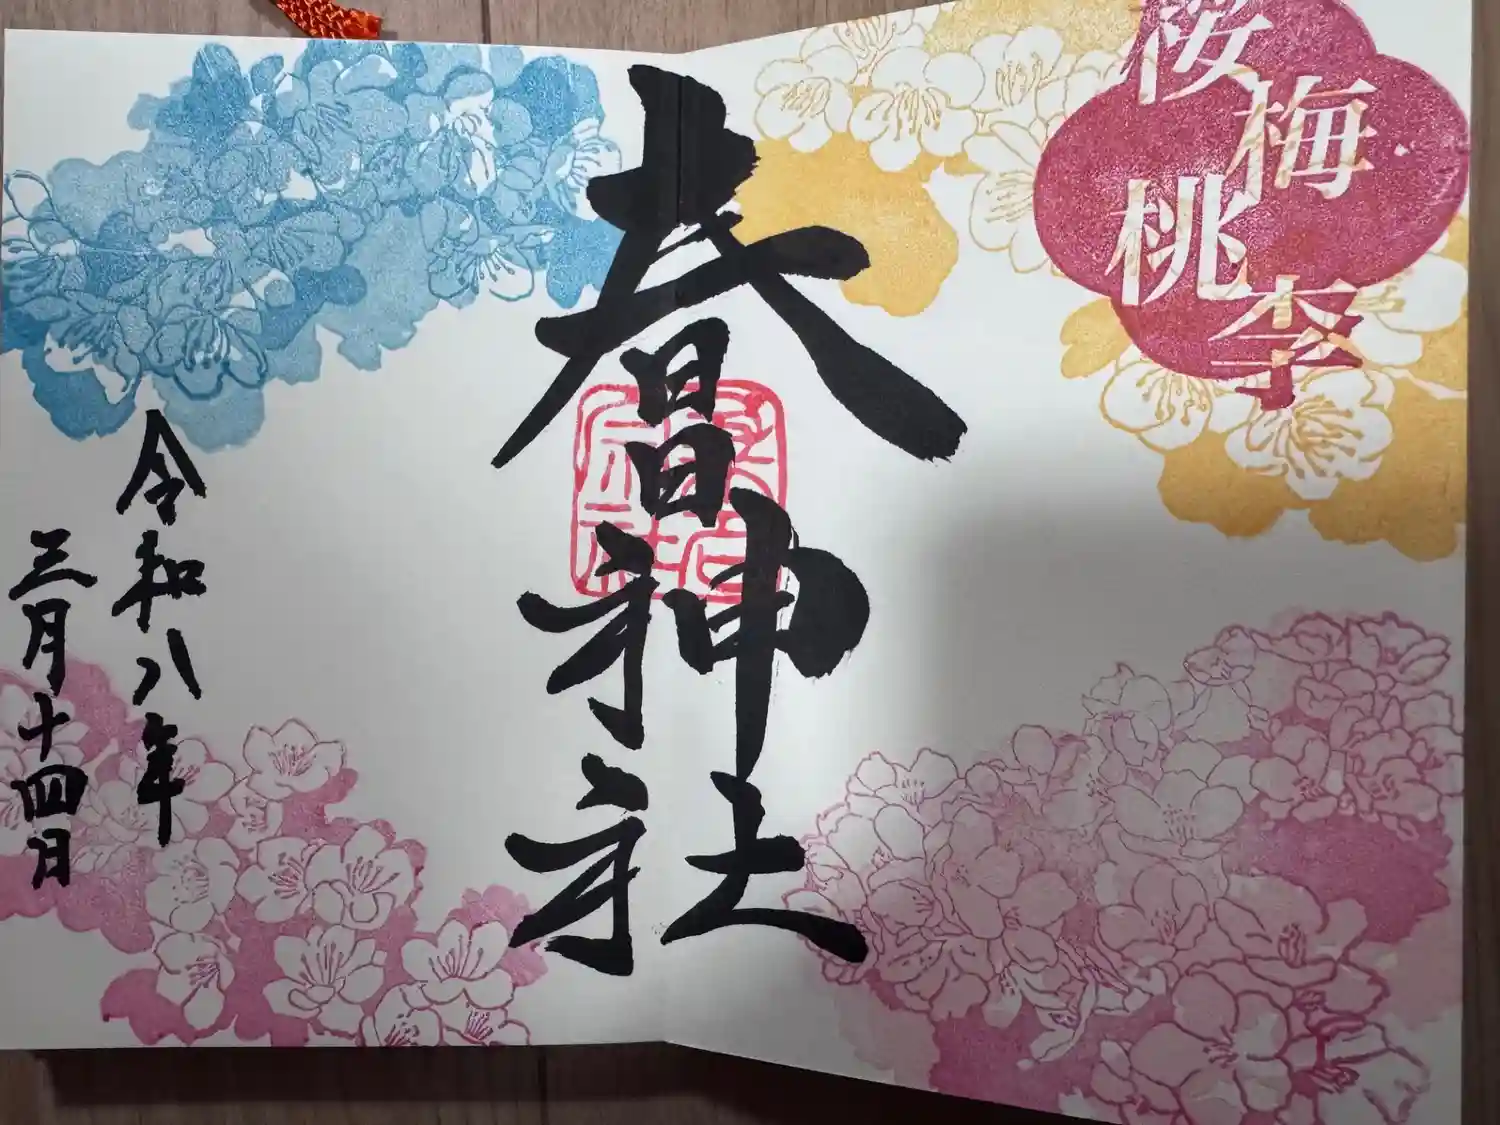 桜梅桃李
春日神社
令和八年
三月十四日